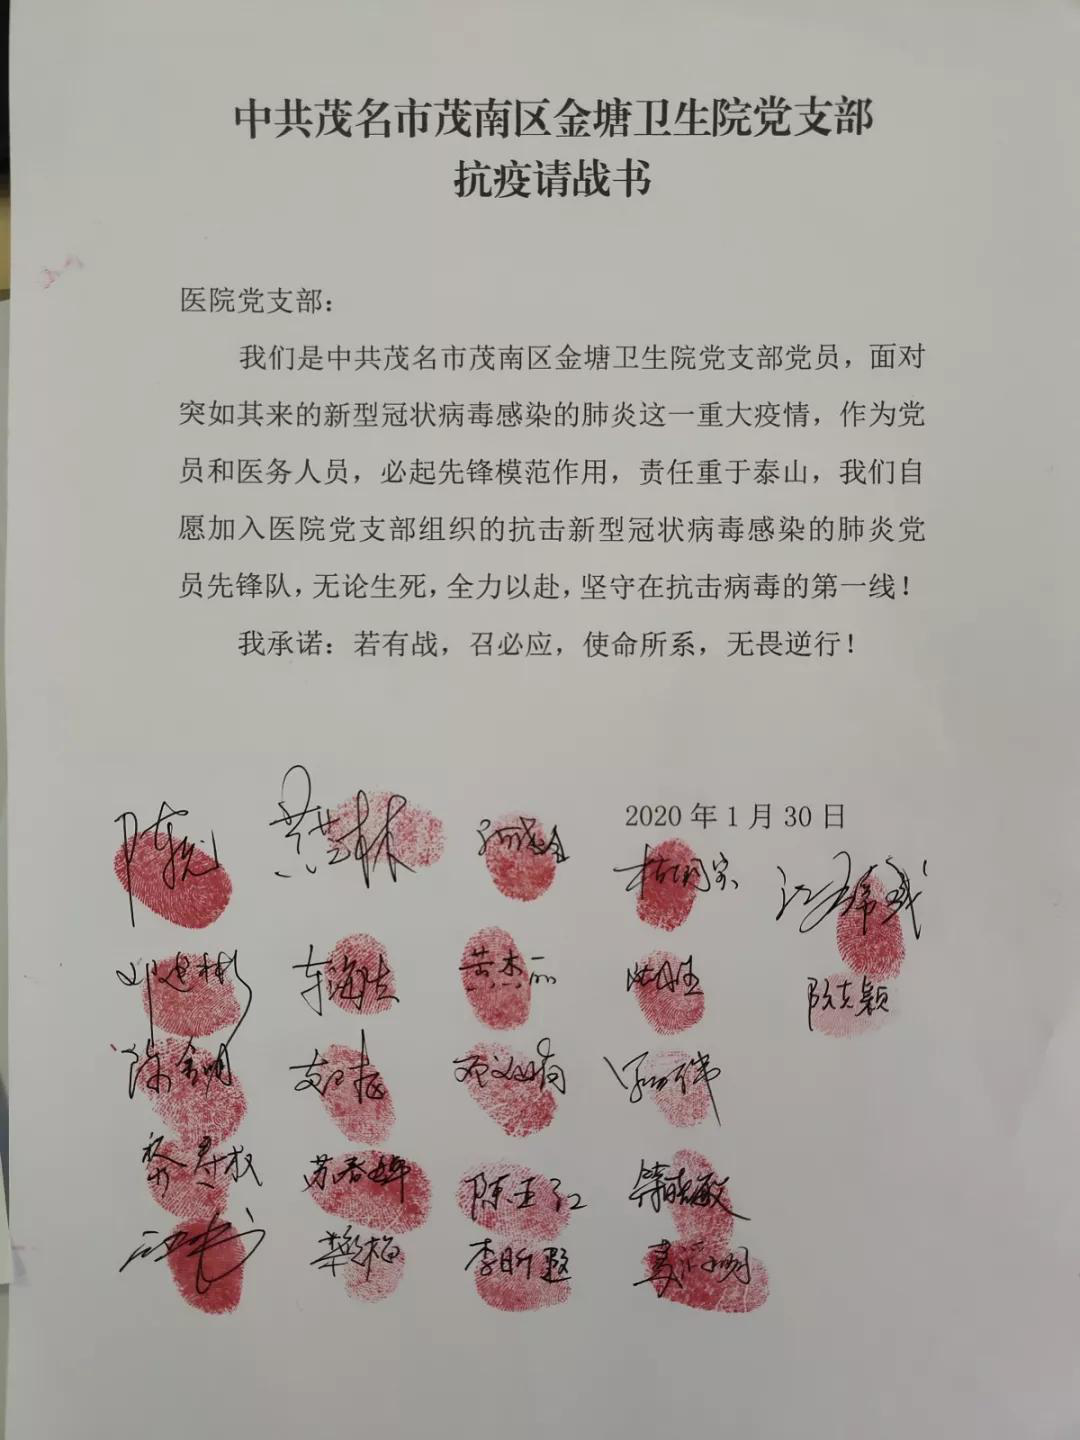 中共茂名市茂南区金塘卫生院党支部
抗疫请战书
医院党支部：
我们是中共茂名市茂南区金塘卫生院党支部党员，面对
突如其来的新型冠状病毒感染的肺炎这一重大疫情，作为党
员和医务人员，必起先锋模范作用，责任重于泰山，我们自
愿加入医院党支部组织的抗击新型冠状病毒感染的肺炎党
员先锋队，无论生死，全力以赴，坚守在抗击病毒的第一线！
我承诺：若有战，召必应，使命所系，无畏逆行！
2020 年 1 月 30 日
邓建彬
黄杰丽
陈金明
苏春婵
陈玉红